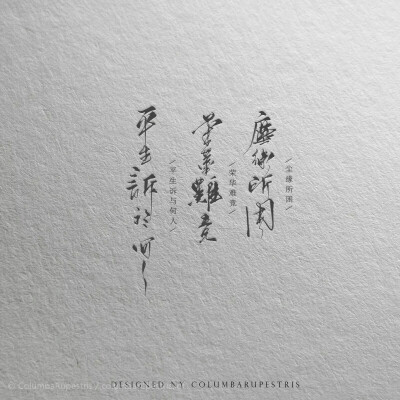 塵緣所困
/尘缘所困/
荣华難竟
/荣华难竟/
平生訴与何人
/平生诉与何人/
DESIGNED NY COLUMBARUPESTRIS
© ColumbaRupestris /